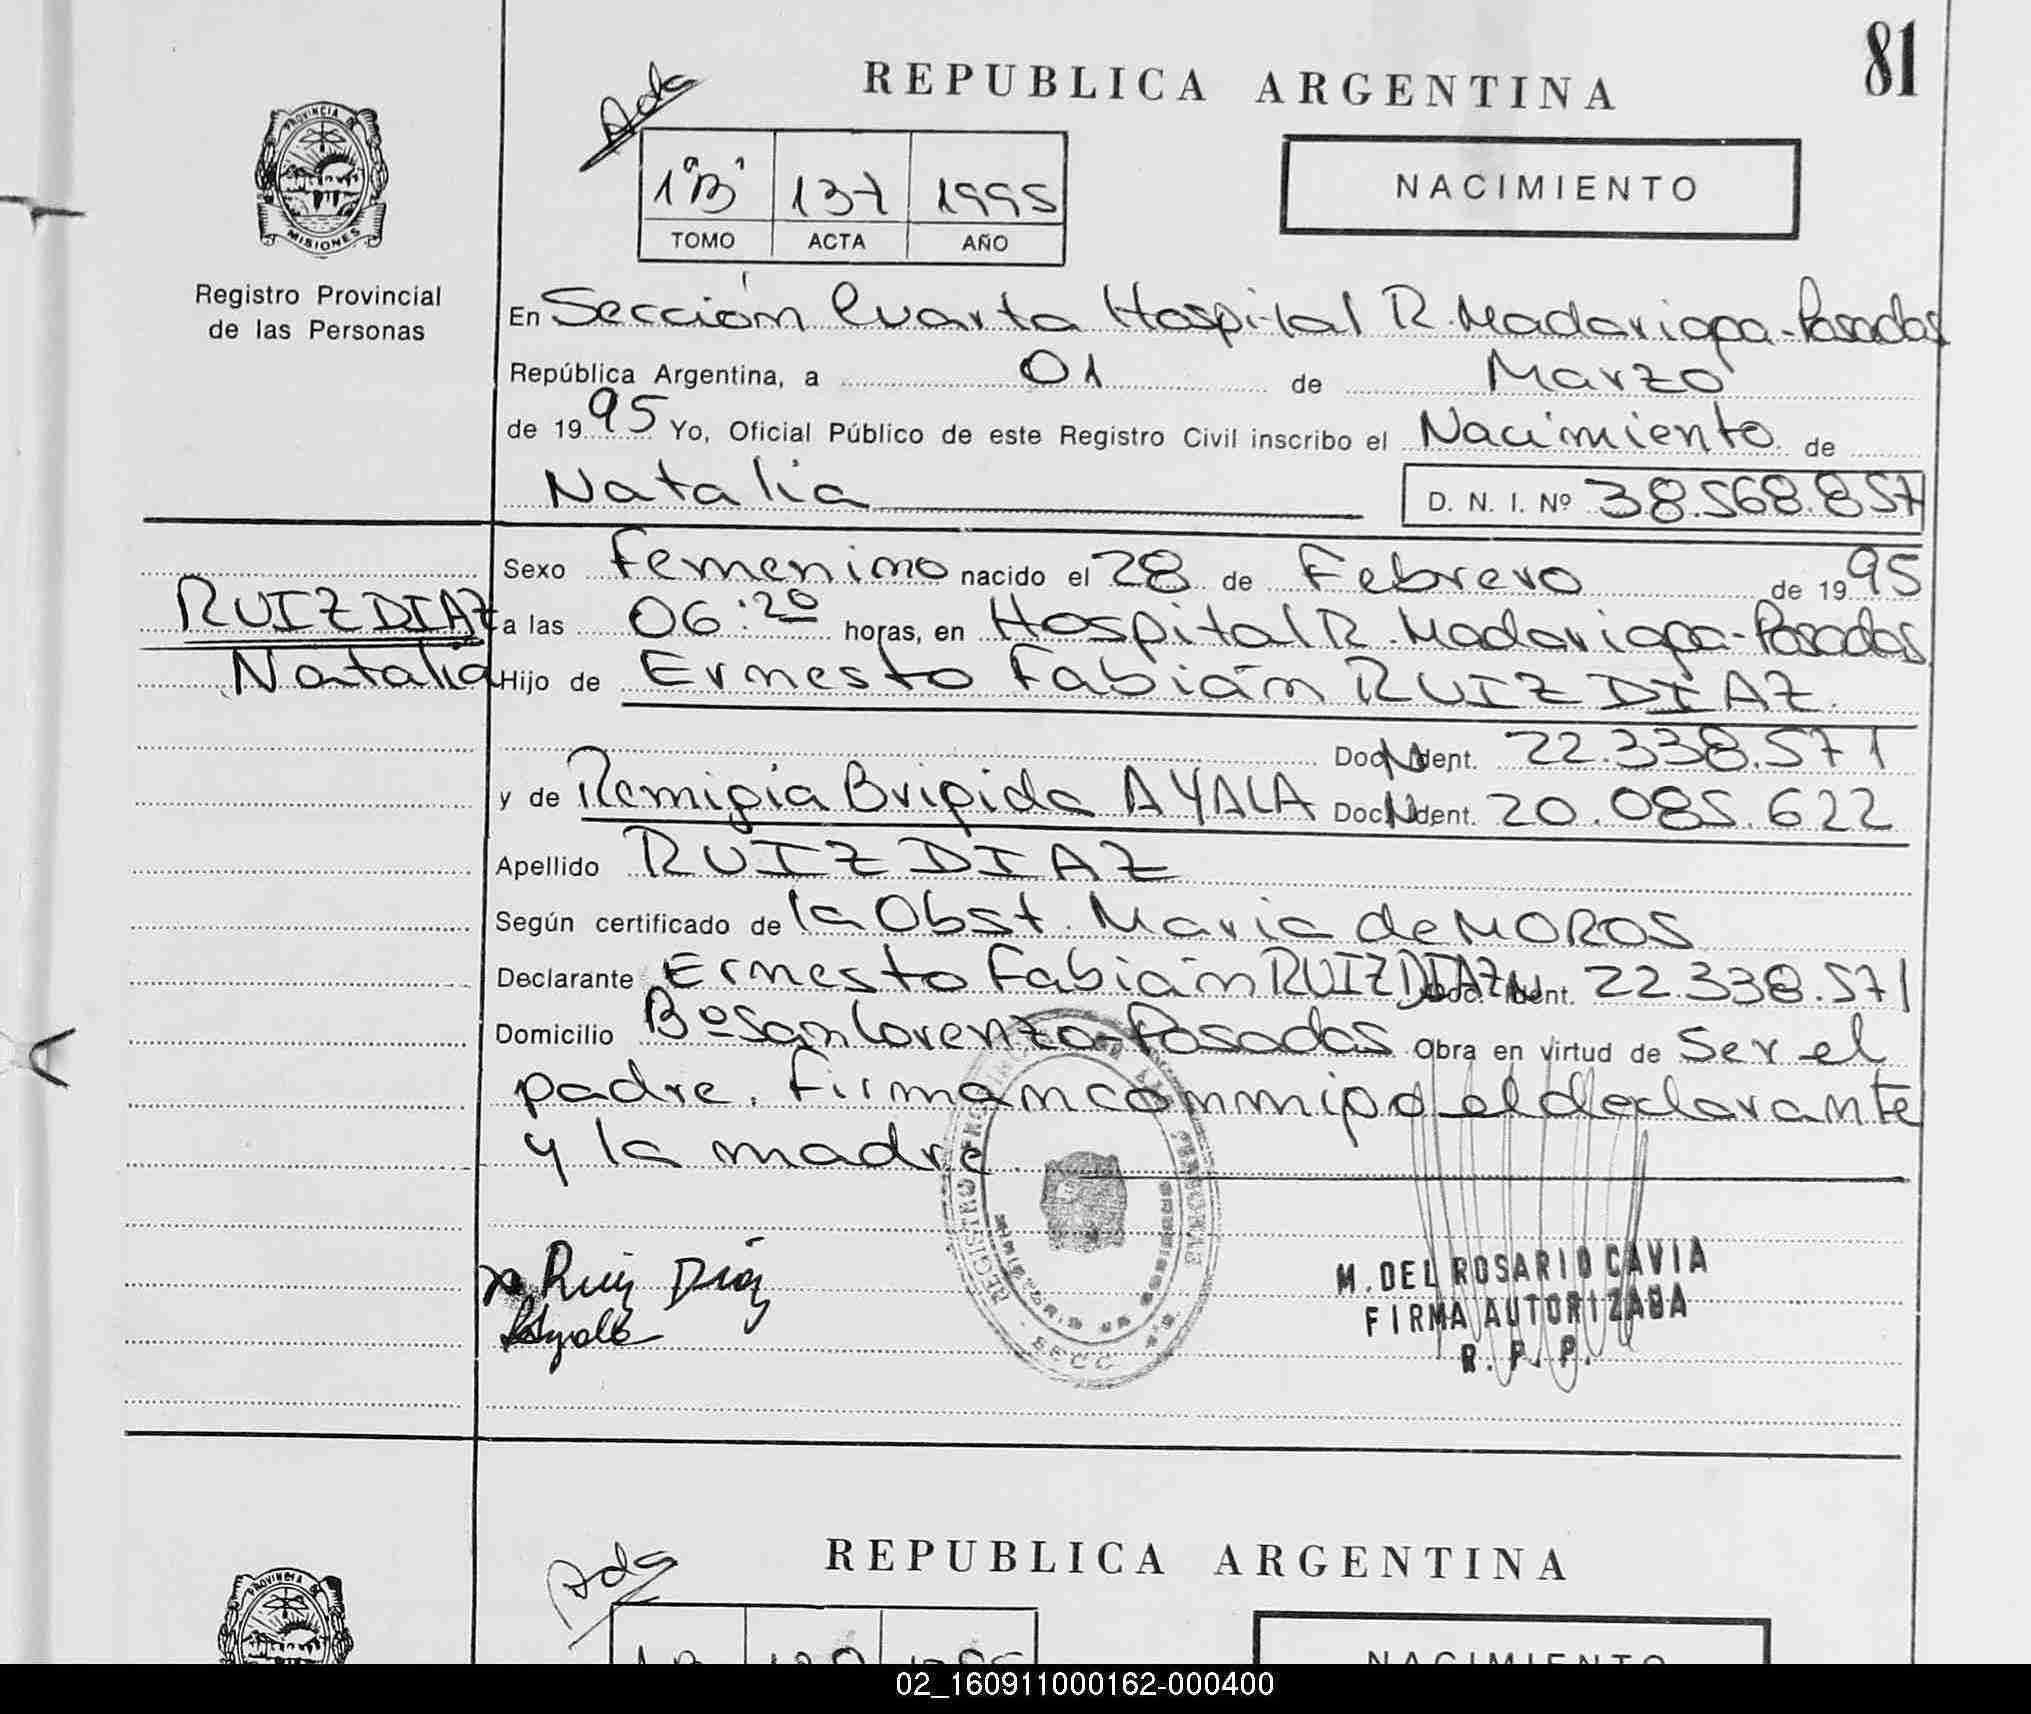 81
REPUBLICA ARGENTINA
Adg
PROVINCIA DE
MISIONES
1º"B" 137 1995
TOMO ACTA AÑO
NACIMIENTO
Registro Provincial
de las Personas
En Sección Cuarta Hospital R. Madariaga-Posadas
República Argentina, a 01 de Marzo
de 1995 Yo, Oficial Público de este Registro Civil inscribo el Nacimiento de
Natalia D. N. I. Nº 38.568.857
Sexo Femenino nacido el 28 de Febrero de 1995
RUIZ DIAZ
Natalia
a las 06:20 horas, en Hospital R. Madariaga-Posadas
Hijo de Ernesto Fabián RUIZ DIAZ
Doc. Ident. 22.338.571
y de Remigia Brigida AYALA Doc. Ident. 20.085.622
Apellido RUIZ DIAZ
Según certificado de la Obst. Maria de MOROS
Declarante Ernesto Fabián RUIZ DIAZ Doc. Ident. 22.338.571
Domicilio Bº San Lorenzo-Posadas Obra en virtud de Ser el
padre. Firman conmigo el declarante
y la madre.
Ruiz Díaz
Ayala
M. DEL ROSARIO CAVIA
FIRMA AUTORIZADA
R. P. P.
REPUBLICA ARGENTINA
Adg
PROVINCIA DE
NACIMIENTO
02_160911000162-000400